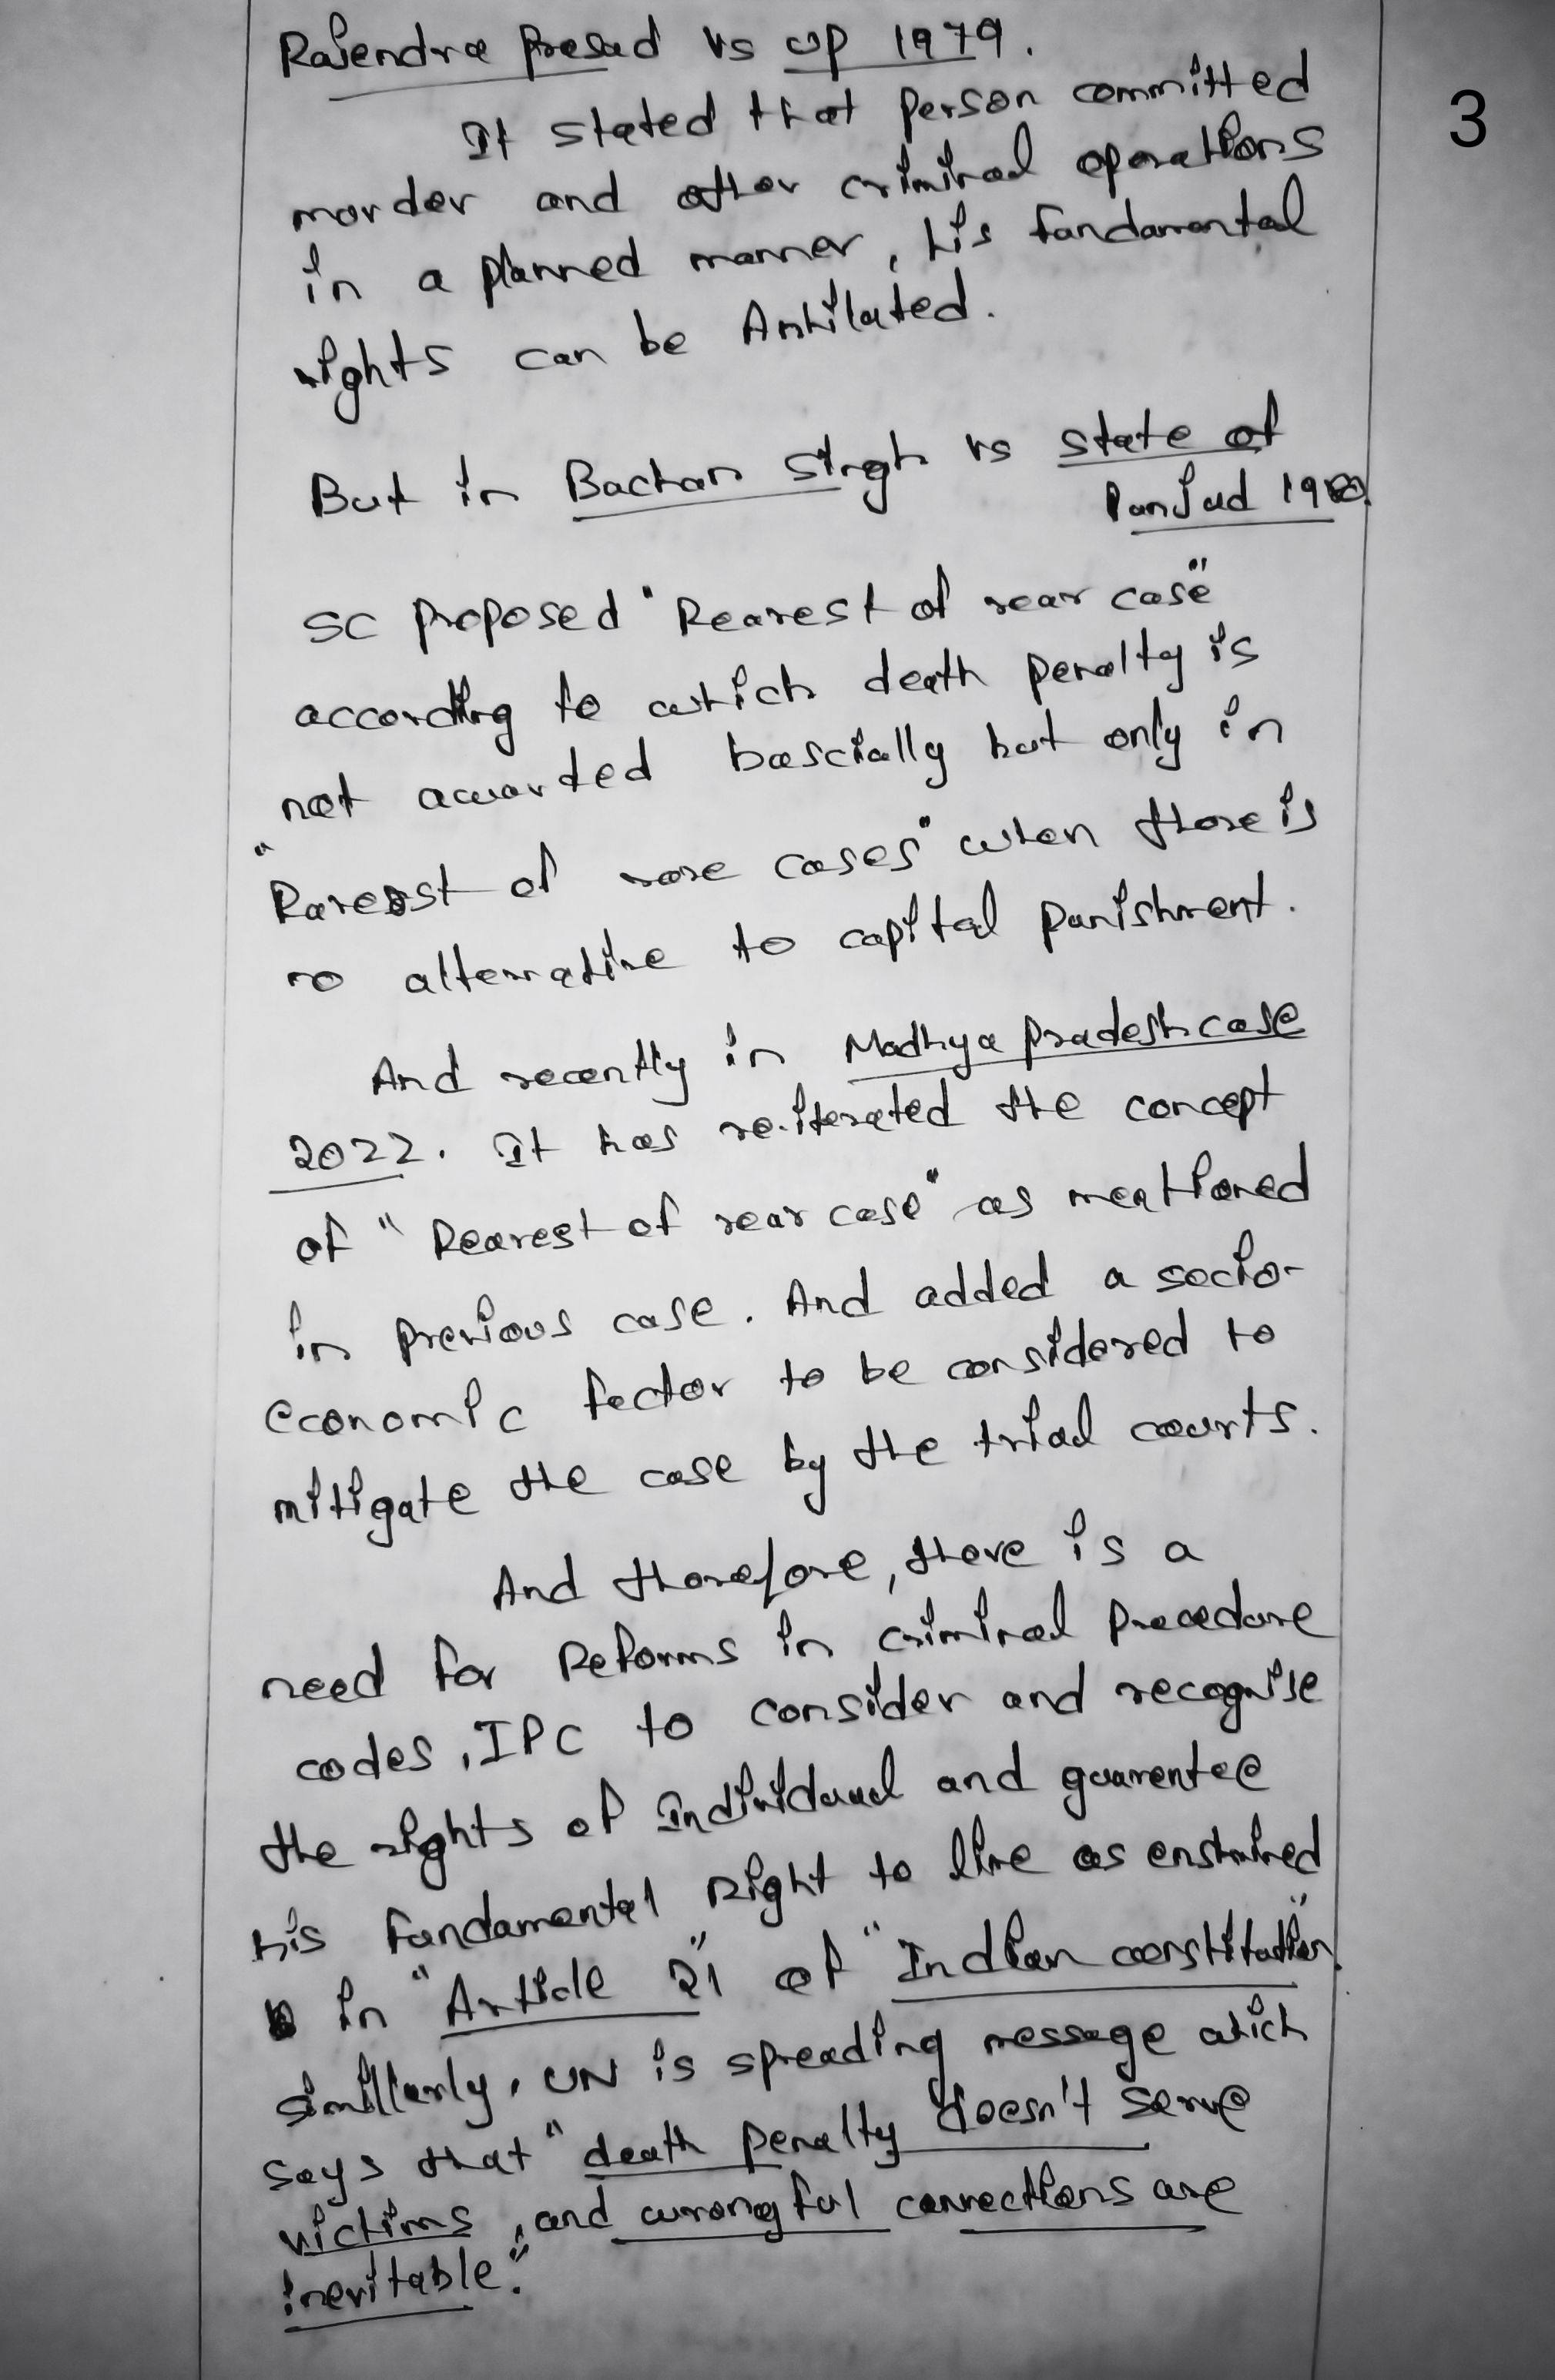 Rajendra Presad vs UP 1979.
It stated that person committed
3
morder and other criminal operations
in a planned manner, his fundamental
rights can be Anhilated.
But in Bachan Singh vs state of
Punjad 1980.
SC proposed "Rearest of rear case"
according to which death penalty is
not awarded bascially but only in
"Rarerst of rare cases" when there is
no alternative to capital punishment.
And recently in Madhya pradesh case
2022. It has re-iterated the concept
of "Rearest of rear case" as mentioned
in previous case. And added a socio-
economic factor to be considered to
mitigate the case by the trial courts.
And therefore, there is a
need for Reforms in criminal procedure
codes, IPC to consider and recognise
the rights of individual and guarentee
his fundamental right to live as enshrined
in "Article 21" of "Indian constitution".
similarly, UN is spreading message which
says that "death penalty doesn't serve
victims, and wrongful connections are
inevitable."